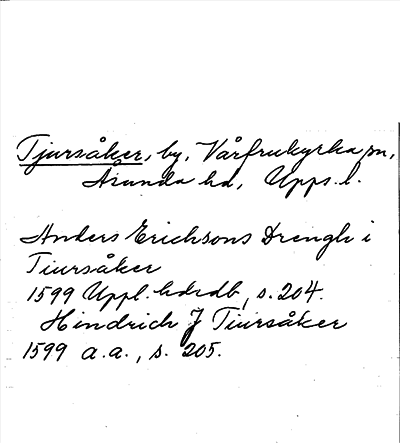 Tjursåker, by, Vårfrukyrka sn,
Åsunda hd, Upps. l.
Anders Erichsons Drengh i
Tiursåker
1599 Uppl. hdrdb, s. 204.
Hindrich J Tiursåker
1599 a.a., s. 205.